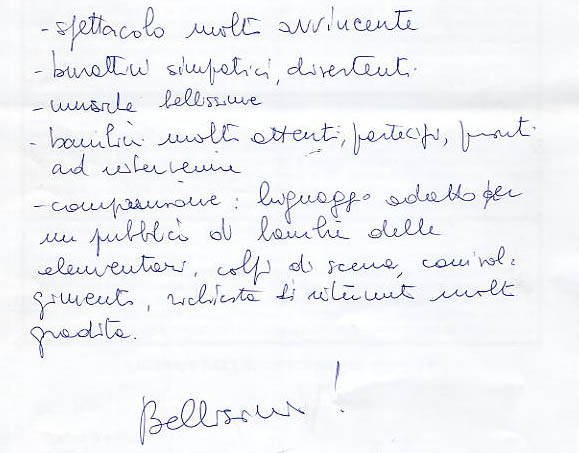 - spettacolo molto avvincente
- burattini simpatici, divertenti.
- musiche bellissime
- bambini molto attenti, partecipi, pronti
ad intervenire
- comprensione : linguaggio adatto per
un pubblico di bambini delle
elementari, colpi di scena, coinvol-
gimento, richiesta di intervento molto
gradita.
Bellissimo !